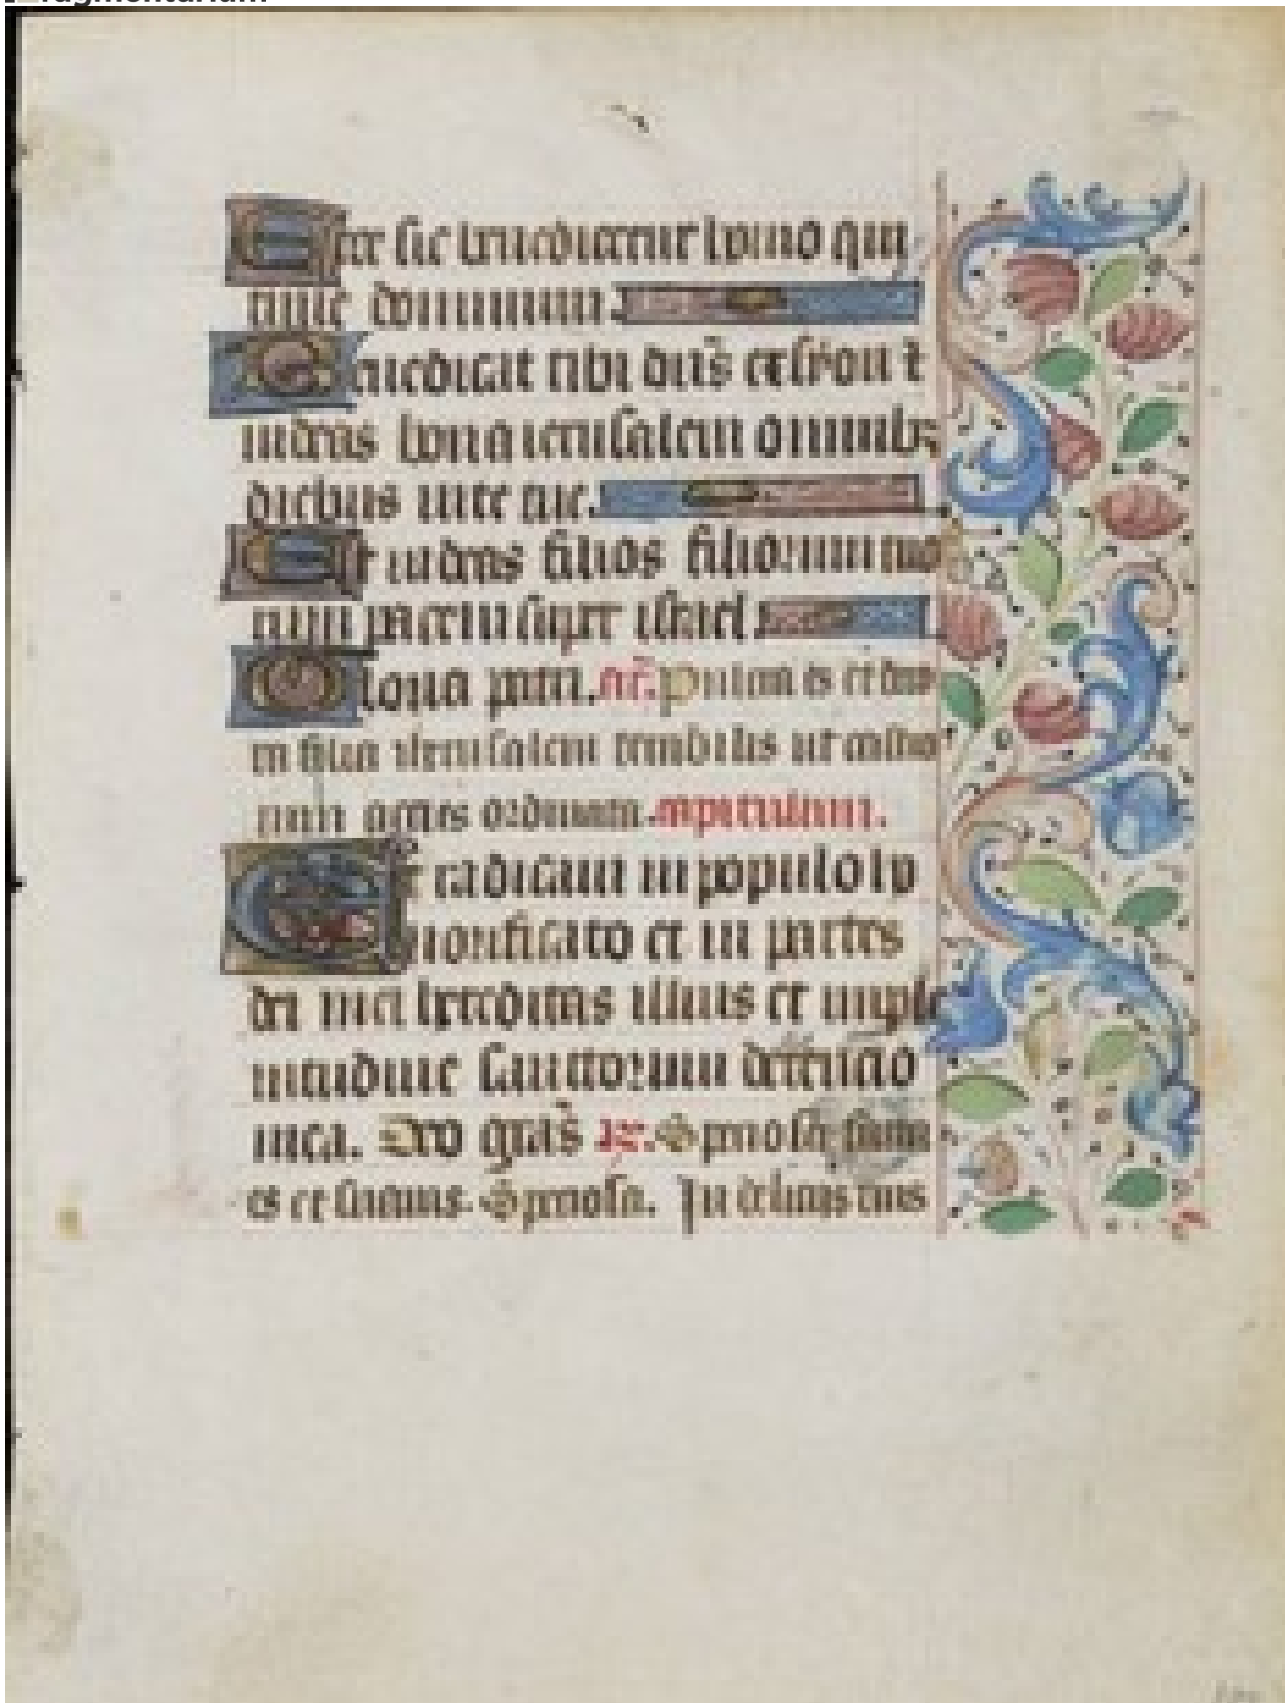 Ecce sic benedicetur homo qui
timet dominum.
Benedicat tibi dn̄s ex syon ⁊
videas bona ierusalem omnibꝫ
diebus vite tue.
Et videas filios filiorum tuo
rum pacem super israel.
Gloria patri. añ. Pulcra es et deco
ra filia iherusalem terribilis ut castro
rum acies ordinata. capitulum.
Et radicaui in populo ho
norificato et in partes
dei mei hereditas illius et in ple
nitudine sanctorum detentio
mea. Deo gr̄as Speciosa facta
es et suauis. Speciosa. In deliciis tuis